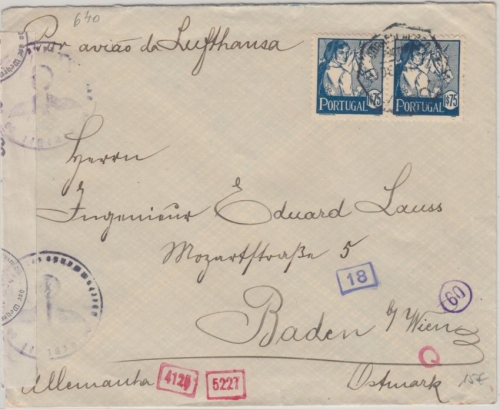 640
Por avião da Lufthansa
$75 $75
PORTUGAL PORTUGAL
Herrn
Ingenieur Eduard Lauss
Mozartstraße 5
18
60
Baden b/Wien
Allemanha
4128 5227
Ostmark
15€